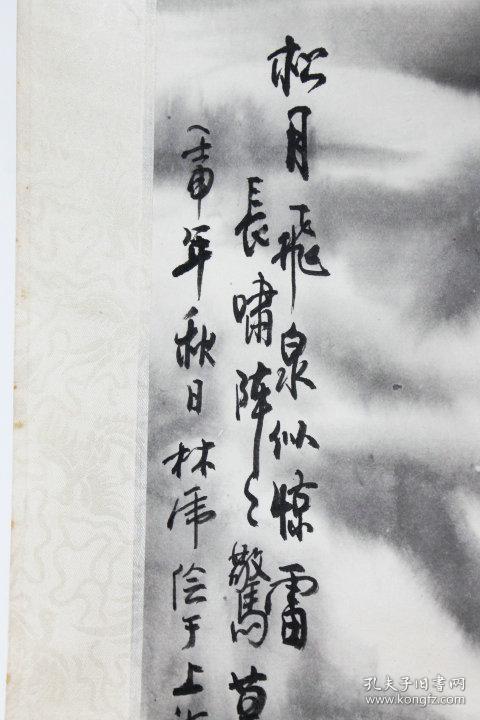 松月飛泉似惊雷
長嘯阵々驚
壬申年秋日林虎陰于上
孔夫子旧书网
www.kongfz.com